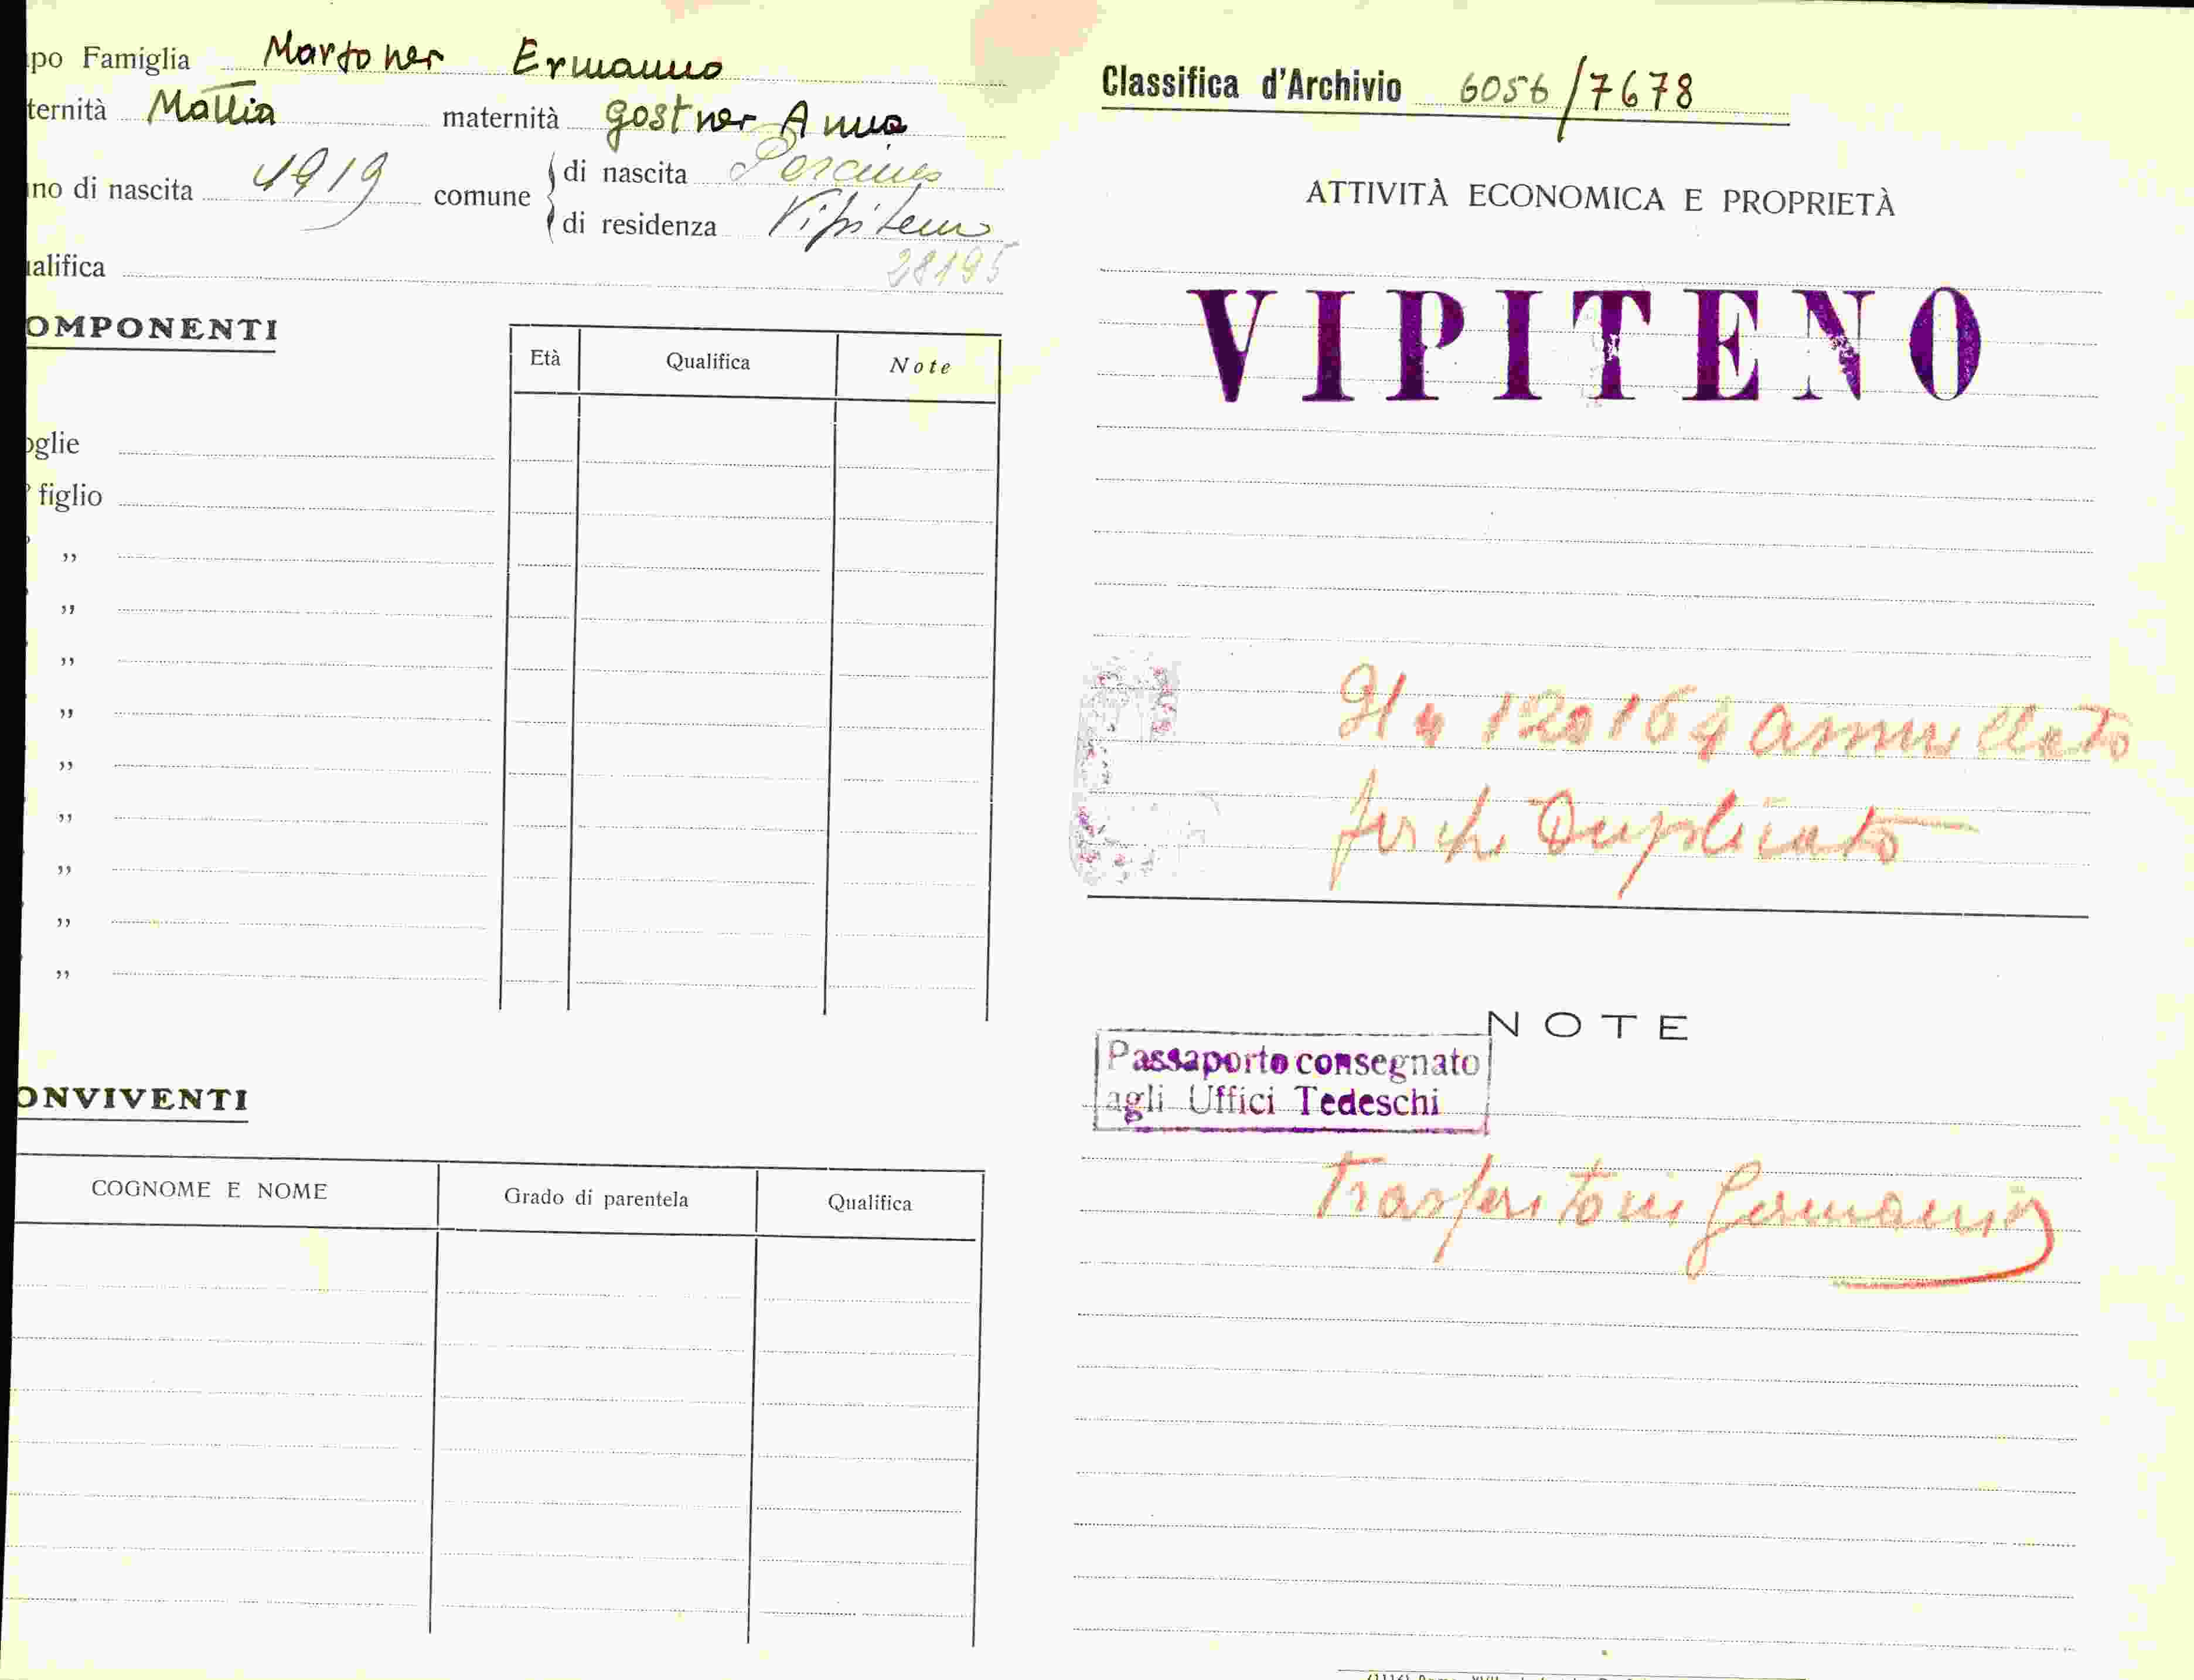 po Famiglia Martoner Ermanno
ternità Mattia maternità Gostner Anna
no di nascita 1919 comune di nascita
di residenza Vipiteno
alifica 28195
OMPONENTI
Età Qualifica Note
oglie
° figlio
„
„
„
„
„
„
„
„
„
ONVIVENTI
COGNOME E NOME Grado di parentela Qualifica
Classifica d'Archivio 6056/7678
ATTIVITÀ ECONOMICA E PROPRIETÀ
VIPITENO
Il n 120164 annullato
perché Duplicato
NOTE
Passaporto consegnato
agli Uffici Tedeschi
Trasferito in Germania